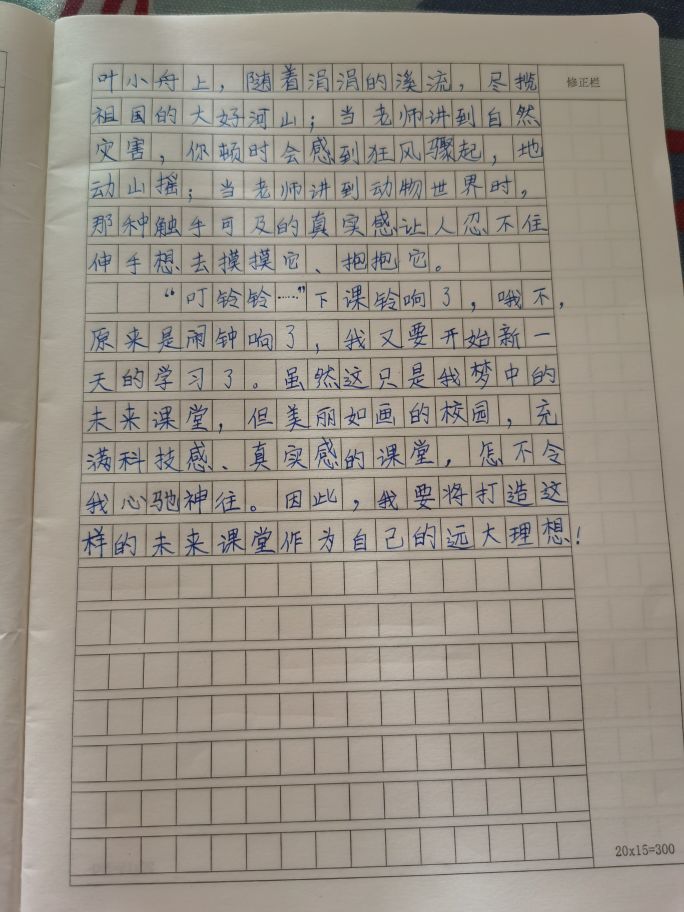 叶小舟上，随着涓涓的溪流，尽揽
修正栏
祖国的大好河山；当老师讲到自然
灾害，你顿时会感到狂风骤起，地
动山摇；当老师讲到动物世界时，
那种触手可及的真实感让人忍不住
伸手想去摸摸它、抱抱它。
“叮铃铃……”下课铃响了，哦不，
原来是闹钟响了，我又要开始新一
天的学习了。虽然这只是我梦中的
未来课堂，但美丽如画的校园，充
满科技感、真实感的课堂，怎不令
我心驰神往。因此，我要将打造这
样的未来课堂作为自己的远大理想！
20x15=300